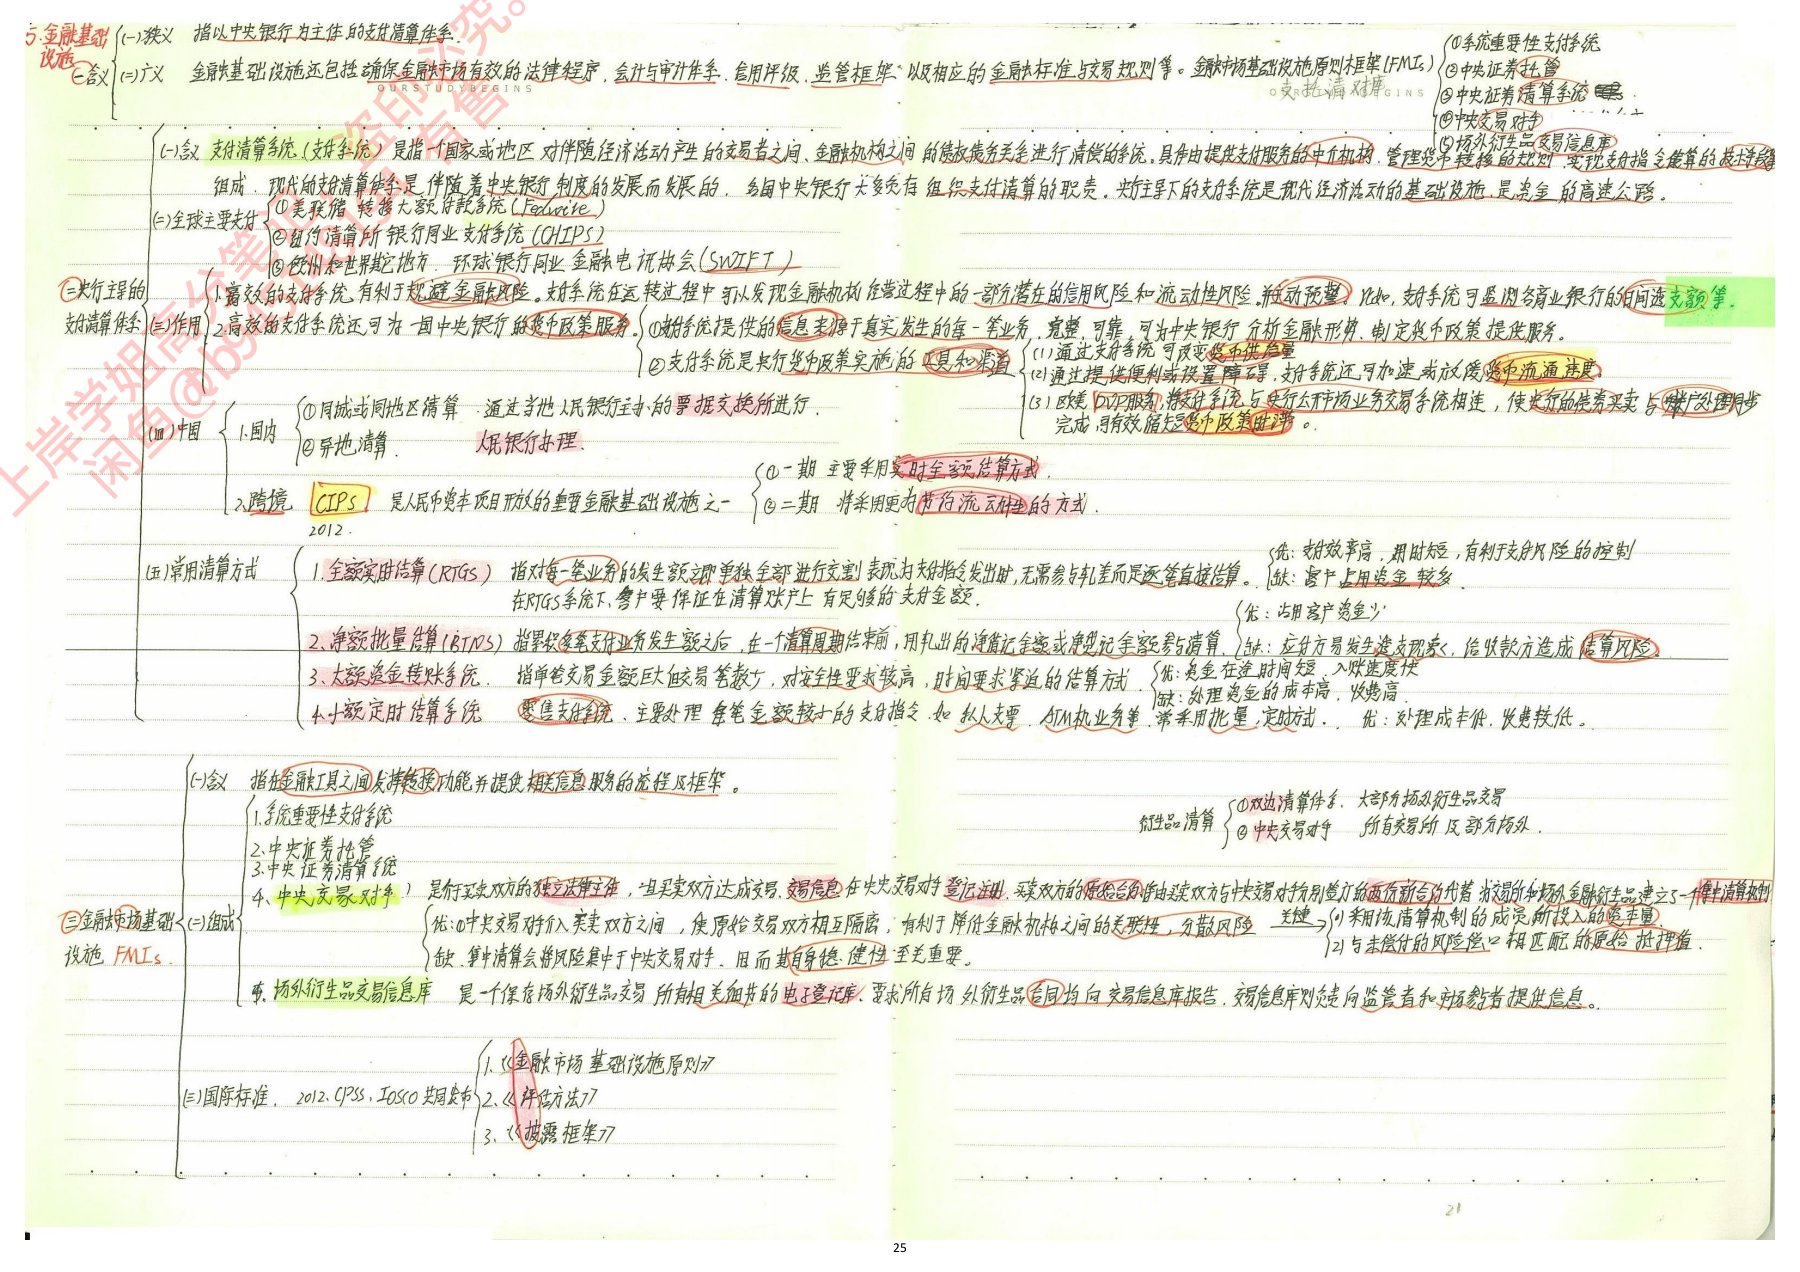 5.金融基础设施
㊀含义
(一)狭义 指以中央银行为主体的支付清算体系.
(二)广义 金融基础设施还包括确保金融市场有效的法律程序、会计与审计体系、信用评级、监管框架 以及相应的金融标准与交易规则等。金融市场基础设施原则框架(FMIs)
OURSTUDYBEGINS
支托清对库
①系统重要性支付系统
②中央证券托管
③中央证券清算系统
④中央交易对手
⑤场外衍生品交易信息库
㊁央行主导的支付清算体系
(一)含义 支付清算系统(支付系统)是指一个国家或地区对伴随经济活动产生的交易者之间、金融机构之间的债权债务关系进行清偿的系统。具体由提供支付服务的中介机构、管理货币转移的规则、实现支付指令清算的技术手段等
组成.现代的支付清算体系是伴随着中央银行制度的发展而发展的.各国中央银行大多负有组织支付清算的职责。央行主导下的支付系统是现代经济活动的基础设施.是资金的高速公路。
(二)全球主要支付
①美联储 转移大额付款系统(Fedwire)
②纽约清算所 银行同业支付系统(CHIPS)
③欧州和世界其它地方.环球银行同业金融电讯协会(SWIFT)
(三)作用
1.高效的支付系统.有利于规避金融风险。支付系统在运转过程中可以发现金融机构经营过程中的一部分潜在的信用风险和流动性风险。并自动预警.此外,支付系统可监测各商业银行的日间透支额等.
2.高效的支付系统还可为一国中央银行的货币政策服务。
①支付系统提供的信息来源于真实发生的每一笔业务.完整、可靠.可为中央银行分析金融形势、制定货币政策提供服务。
②支付系统是央行货币政策实施的工具和渠道
(1)通过支付系统可改变货币供给量
(2)通过提供便利或设置障碍,支付系统还可加速或放缓货币流通速度.
(3)欧美DVP服务,将支付系统与央行公开市场业务交易系统相连,使央行的债券买卖与账户处理同步
完成,可有效缩短货币政策时滞。
(四)中国
1.国内
①同城或同地区清算.通过当地人民银行主办的票据交换所进行.
②异地清算. 人民银行办理.
2.跨境 CIPS 是人民币资本项目开放的重要金融基础设施之一
2012.
①一期 主要采用实时全额结算方式
②二期 将采用更为节约流动性的方式.
(五)常用清算方式
1.全额实时结算(RTGS) 指对每一笔业务的发生额立即单独全部进行交割 表现为支付指令发出时,无需参与轧差而是逐笔直接结算。
在RTGS系统下、客户要保证在清算账户上有足够的支付金额.
优:支付效率高.用时短,有利于支付风险的控制
缺:客户占用资金较多.
2.净额批量结算(BTNS) 指累积多笔支付业务发生额之后,在一个清算周期结束前,用轧出的净借记金额或净贷记金额参与清算.
优:占用客户资金少
缺:应付方易发生透支现象,给收款方造成结算风险。
3.大额资金转账系统. 指单笔交易金额巨大但交易笔数少,对安全性要求较高,时间要求紧迫的结算方式.
优:资金在途时间短、入账速度快
缺:处理资金的成本高.收费高.
4.小额定时结算系统 零售支付系统.主要处理每笔金额较小的支付指令.如私人支票、ATM机业务等.常采用批量,定时方式. 优:处理成本低.收费较低。
㊂金融市场基础设施 FMIs.
(一)含义 指在金融工具之间发挥转换功能并提供相关信息服务的流程及框架。
衍生品清算
①双边清算体系.大部分场外衍生品交易
②中央交易对手 所有交易所及部分场外.
(二)组成
1.系统重要性支付系统
2.中央证券托管
3.中央证券清算系统
4.中央交易对手 是介于买卖双方的独立法律主体,一旦买卖双方达成交易.交易信息在中央交易对手登记注册.买卖双方的原始合约皆由买卖双方与中央交易对手分别签订的两份新合约代替.为交易所和场外金融衍生品建立了一个集中清算机制
优:①中央交易对手介入买卖双方之间,使原始交易双方相互隔离,有利于降低金融机构之间的关联性,分散风险
关键
(1)采用该清算机制的成员所投入的资本量.
(2)与未偿付的风险偿口相匹配的原始抵押值.
缺.集中清算会将风险集中于中央交易对手.因而其自身稳健性至关重要。
5.场外衍生品交易信息库 是一个保存场外衍生品交易所有相关细节的电子登记库.要求所有场外衍生品合同均向交易信息库报告.交易信息库则负责向监管者和市场参与者提供信息。
(三)国际标准. 2012.CPSS、IOSCO共同发布
1.《金融市场基础设施原则》
2.《评估方法》
3.《披露框架》
21
25